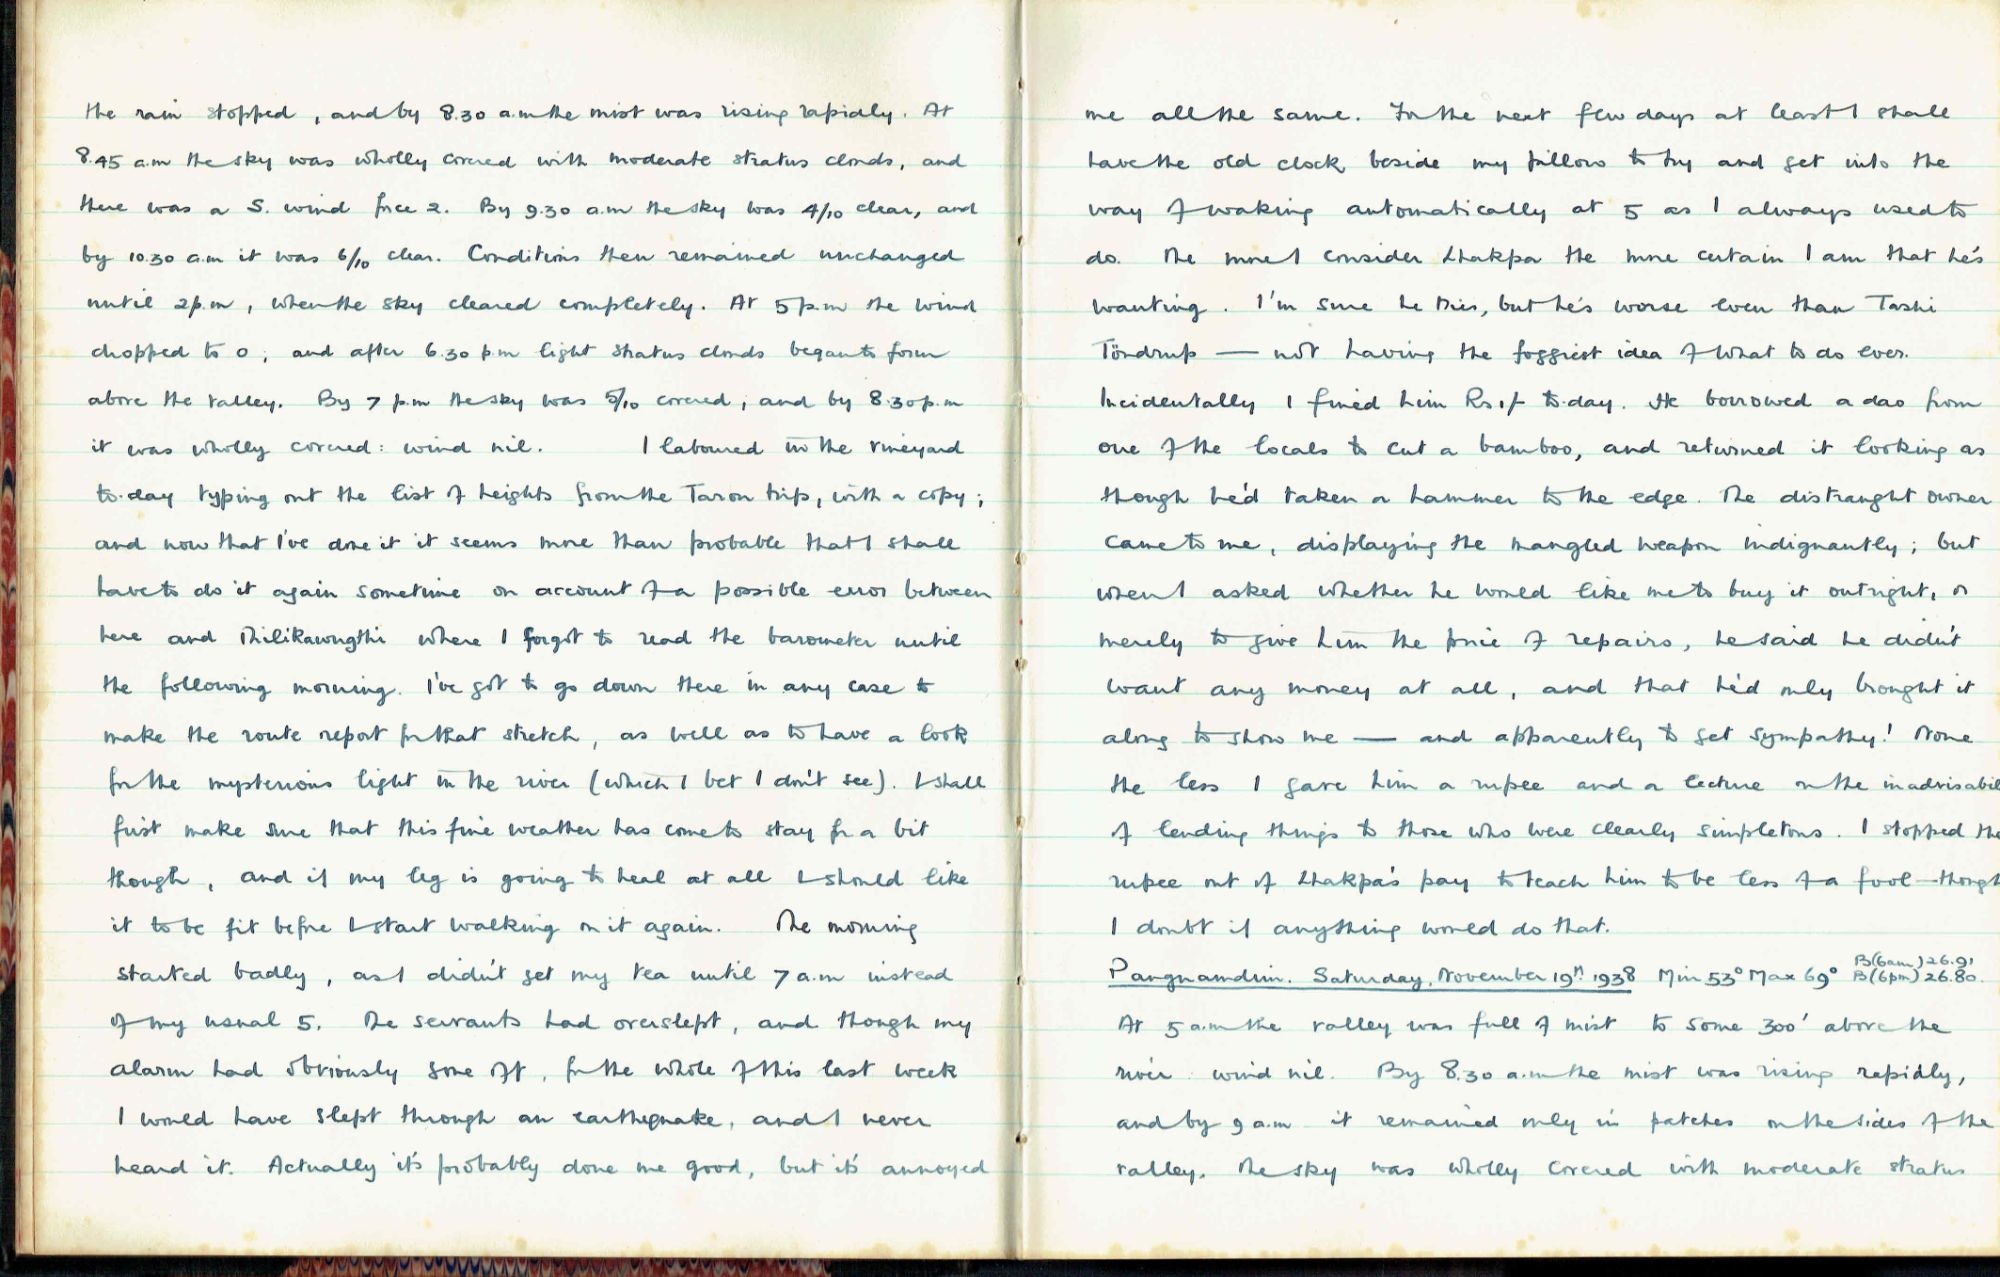 the rain stopped, and by 8.30 a.m the mist was rising rapidly. At
8.45 a.m the sky was wholly covered with moderate stratus clouds, and
there was a S. wind force 2. By 9.30 a.m the sky was 4/10 clear, and
by 10.30 a.m it was 6/10 clear. Conditions then remained unchanged
until 2 p.m, when the sky cleared completely. At 5 p.m the wind
dropped to 0; and after 6.30 p.m light stratus clouds began to form
above the valley. By 7 p.m the sky was 5/10 covered, and by 8.30 p.m
it was wholly covered: wind nil. I laboured in the vineyard
to-day typing out the list of heights from the Taron trip, with a copy;
and now that I've done it it seems more than probable that I shall
have to do it again sometime on account of a possible error between
here and where I forgot to read the barometer until
the following morning. I've got to go down there in any case to
make the route report for that stretch, as well as to have a look
for the mysterious light in the river (which I bet I don't see). I shall
first make sure that this fine weather has come to stay for a bit
though, and if my leg is going to heal at all I should like
it to be fit before I start walking on it again. The morning
started badly, as I didn't get my tea until 7 a.m instead
of my usual 5. The servants had overslept, and though my
alarm had obviously gone off, for the whole of this last week
I would have slept through an earthquake, and I never
heard it. Actually it's probably done me good, but it's annoyed
me all the same. For the next few days at least I shall
have the old clock beside my pillow to try and get into the
way of waking automatically at 5 as I always used to
do. The more I consider Lhakpa the more certain I am that he's
wanting. I'm sure he tries, but he's worse even than Tashi
Töndrup — not having the foggiest idea of what to do ever.
Incidentally I fined him Rs.1/- to-day. He borrowed a dao from
one of the locals to cut a bamboo, and returned it looking as
though he'd taken a hammer to the edge. The distraught owner
came to me, displaying the mangled weapon indignantly; but
when I asked whether he would like me to buy it outright, or
merely to give him the price of repairs, he said he didn't
want any money at all, and that he'd only brought it
along to show me — and apparently to get sympathy! None
the less I gave him a rupee and a lecture on the inadvisabil
of lending things to those who were clearly simpletons. I stopped the
rupee out of Lhakpa's pay to teach him to be less of a fool — though
I doubt if anything would do that.
Pangnamdim. Saturday, November 19th 1938 Min 53° Max 69° B(6am) 26.91 B(6pm) 26.80.
At 5 a.m the valley was full of mist to some 300' above the
river: wind nil. By 8.30 a.m the mist was rising rapidly,
and by 9 a.m it remained only in patches on the sides of the
valley. The sky was wholly covered with moderate stratus